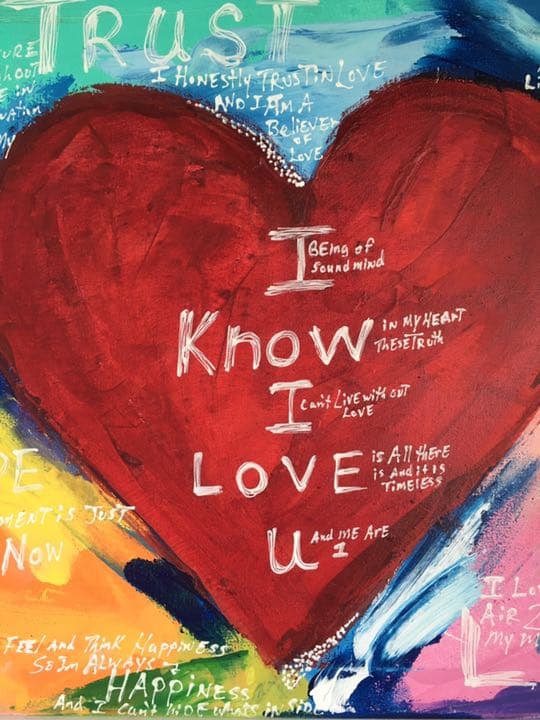 TRUST
I HONESTLY TRUST IN LOVE
AND I AM A
BELIEVER
OF
LOVE
I BEING OF
SOUND MIND
KNOW IN MY HEART
THESE TRUTH
I CAN'T LIVE WITH OUT
LOVE
LOVE IS ALL THERE
IS AND IT IS
TIMELESS
U AND ME ARE
I
IS JUST
NOW
FEEL AND THINK HAPPINESS
SO IM ALWAYS
HAPPINESS
AND I CAN'T HIDE WHATS IN SIDE
I LO
AIR
MY
L